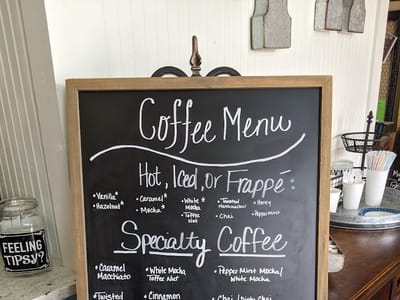 Coffee Menu
Hot, Iced, or Frappé:
• Vanilla* • Caramel* • White Mocha • Toasted Marshmallow • Honey
• Hazelnut* • Mocha* • Toffee Nut • Chai • Peppermint
Specialty Coffee
• Caramel Macchiato • White Mocha Toffee Nut • Pepper Mint Mocha/ White Mocha
• Twisted • Cinnamon • Chai / Dirty Chai
FEELING
TIPSY?